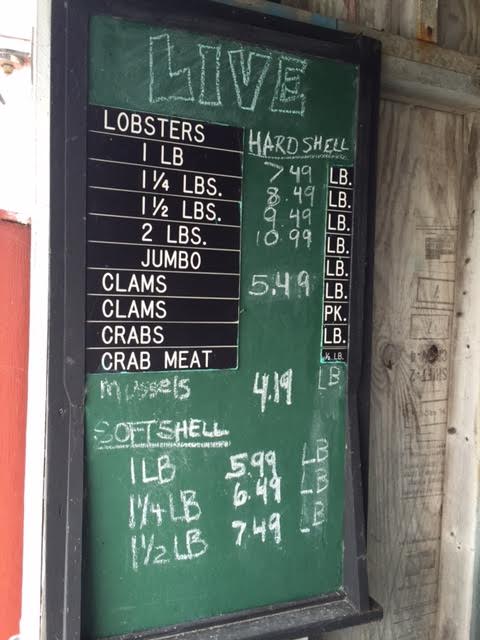 LIVE
LOBSTERS HARDSHELL
1 LB 7.49 LB.
1¼ LBS. 8.49 LB.
1½ LBS. 9.49 LB.
2 LBS. 10.99 LB.
JUMBO LB.
CLAMS 5.49 LB.
CLAMS PK.
CRABS LB.
CRAB MEAT ½ LB.
mussels 4.19 LB
SOFTSHELL
1LB 5.99 LB
1¼LB 6.49 LB
1½LB 7.49 LB